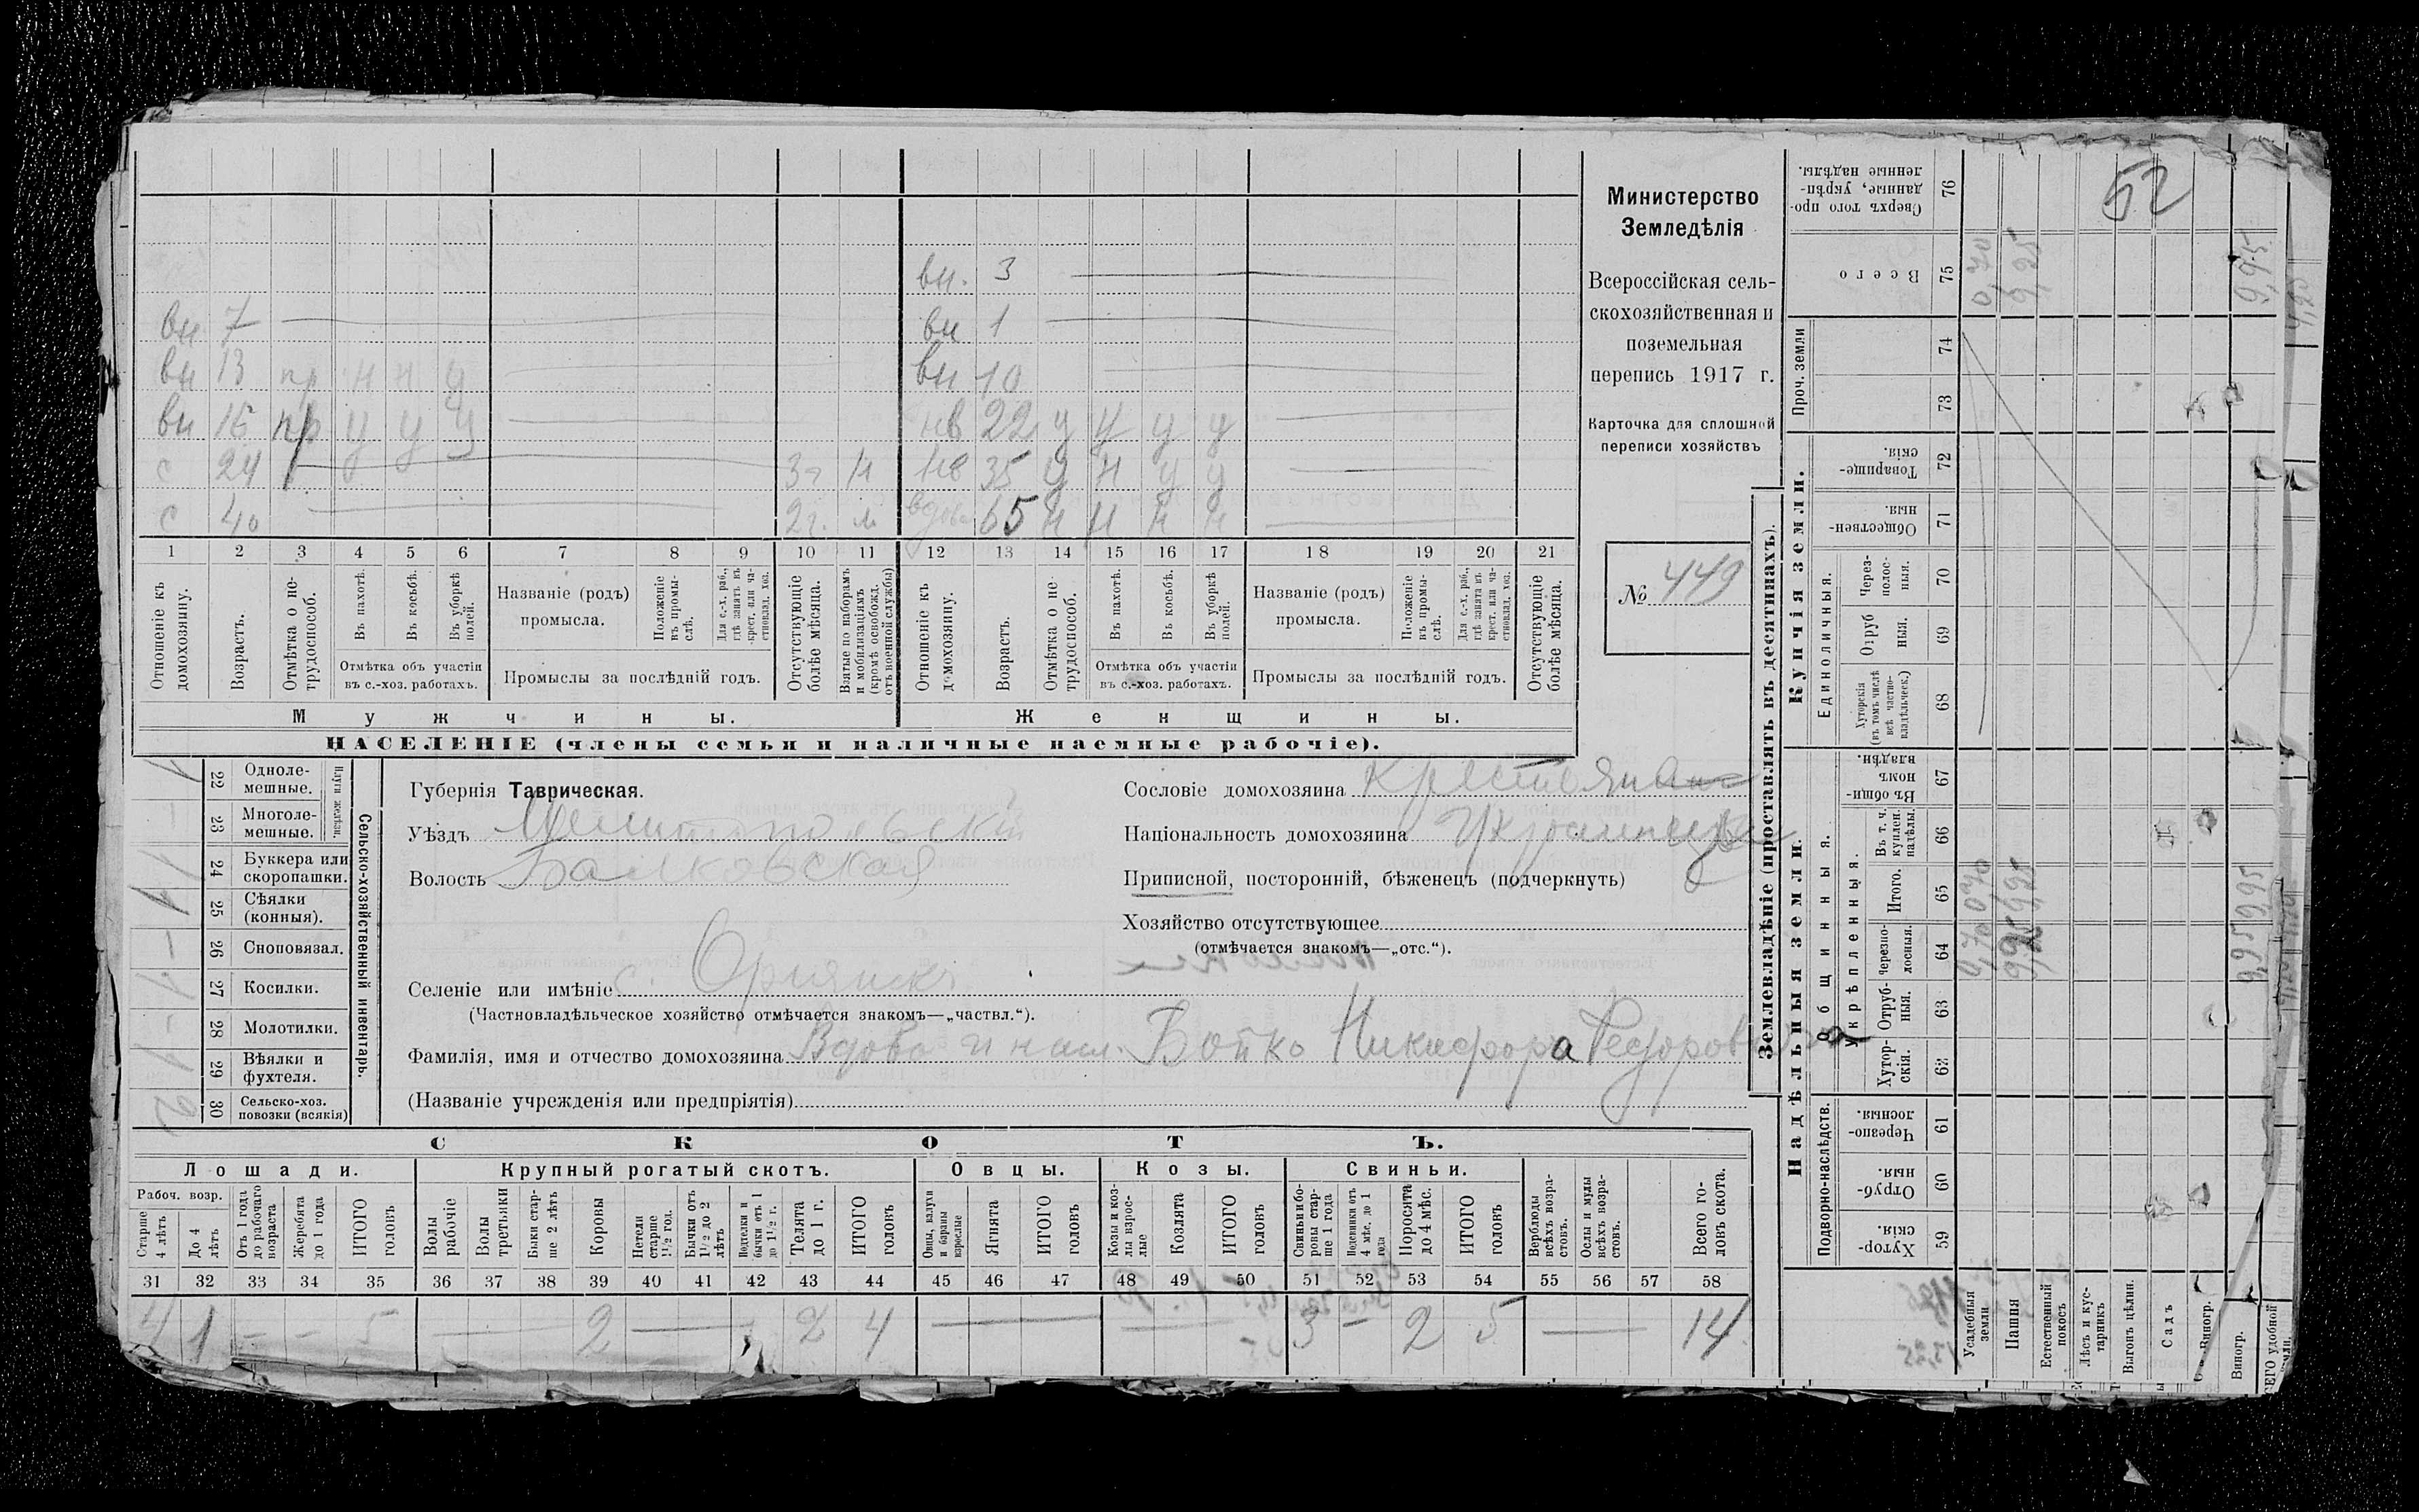 52
Министерство
Земледѣлія
Всероссійская сель-
скохозяйственная и
поземельная
перепись 1917 г.
Карточка для сплошной
переписи хозяйствъ
№ 449
вн. 3
вн 7 вн 1
вн 13 пр н н у вн 10
вн 15 пр у у у нв 22 у у у у
с 24 3г м нв 35 у н у у
с 40 2г. м вдова 65 н н н н
1 2 3 4 5 6 7 8 9 10 11 12 13 14 15 16 17 18 19 20 21
Отношеніе къ домохозяину.
Возрастъ.
Отмѣтка о не-трудоспособ.
Въ пахотѣ.
Въ косьбѣ.
Въ уборкѣ полей.
Отмѣтка объ участіи
въ с.-хоз. работахъ.
Названіе (родъ)
промысла.
Положеніе въ промы-слѣ.
Для с.-х. раб., гдѣ занятъ въ крест. или ча-стновлад. хоз.
Промыслы за послѣдній годъ.
Отсутствующіе болѣе мѣсяца.
Взятые по наборамъ и мобилизаціямъ (кромѣ освобожд. отъ военной службы)
Отношеніе къ домохозяину.
Возрастъ.
Отмѣтка о не-трудоспособ.
Въ пахотѣ.
Въ косьбѣ.
Въ уборкѣ полей.
Отмѣтка объ участіи
въ с.-хоз. работахъ.
Названіе (родъ)
промысла.
Положеніе въ промы-слѣ.
Для с.-х. раб., гдѣ занята въ крест. или ча-стновлад. хоз.
Промыслы за послѣдній годъ.
Отсутствующіе болѣе мѣсяца.
Мужчины. Женщины.
НАСЕЛЕНІЕ (члены семьи и наличные наемные рабочіе).
Сельско-хозяйственный инвентарь.
Плуги желѣзн.
1 22 Одноле-мешные.
– 23 Многоле-мешные.
1 24 Буккера или скоропашки.
1 25 Сѣялки (конныя).
– 26 Сноповязал.
1 27 Косилки.
– 28 Молотилки.
1 29 Вѣялки и фухтеля.
2 30 Сельско-хоз. повозки (всякія)
Губернія Таврическая.
Уѣздъ Мелитопольскій
Волость Балковская
Селеніе или имѣніе с. Орлянскъ
(Частновладѣльческое хозяйство отмѣчается знакомъ—„частвл.“).
Сословіе домохозяина крестьянинъ
Національность домохозяина Украинецъ
Приписной, посторонній, бѣженецъ (подчеркнуть)
Хозяйство отсутствующее
(отмѣчается знакомъ—„отс.“).
Фамилія, имя и отчество домохозяина Вдова и насл. Бойко Никифора Федорова
(Названіе учрежденія или предпріятія)
СКОТЪ.
Лошади. Крупный рогатый скотъ. Овцы. Козы. Свиньи.
Рабоч. возр.
Старше 4 лѣтъ
До 4 лѣтъ
Отъ 1 года до рабочаго возраста
Жеребята до 1 года
ИТОГО головъ
Волы рабочіе
Волы третьяки
Быки стар-ше 2 лѣтъ
Коровы
Нетели старше 1½ год.
Бычки отъ 1½ до 2 лѣтъ
Подтелки и бычки отъ 1 до 1½ г.
Телята до 1 г.
ИТОГО головъ
Овцы, валухи и бараны взрослые
Ягнята
ИТОГО головъ
Козы и коз-лы взрос-лые
Козлята
ИТОГО головъ
Свиньи и бо-ровы стар-ше 1 года
Подсвинки отъ 4 мѣс. до 1 года
Поросята до 4 мѣс.
ИТОГО головъ
Верблюды всѣхъ возра-стовъ.
Ослы и мулы всѣхъ возра-стовъ.
Всего го-ловъ скота.
31 32 33 34 35 36 37 38 39 40 41 42 43 44 45 46 47 48 49 50 51 52 53 54 55 56 57 58
4 1 – – 5 2 2 4 3 – 2 5 14
Землевладѣніе (проставлять въ десятинахъ).
Надѣльныя земли. Купчія земли.
Подворно-наслѣдств. Общинныя.
Укрѣпленныя. Единоличныя. Проч. земли
Хутор-скія. 59
Отруб-ныя. 60
Черезпо-лосныя. 61
Хутор-скія. 62
Отруб-ныя. 63
Черезпо-лосныя. 64
Итого. 65
Въ т. ч. куплен. надѣлы. 66
Въ общи-номъ владѣн. 67
Хуторскія (въ томъ числѣ всѣ частно-владѣльческ.) 68
Отруб ныя. 69
Через-полос-ныя. 70
Обществен-ныя. 71
Товарище-скія. 72
73
74
Всего 75
Сверхъ того про-данные, укрѣп-ленные надѣлы. 76
Усадебныя земли 0,70 0,70 0,70
Пашня 9,25 9,25 9,25
Естественный покосъ
Лѣсъ и кус-тарникъ
Выгонъ цѣлин.
Садъ
Виногр.
Виногр.
9,95 9,95 9,95